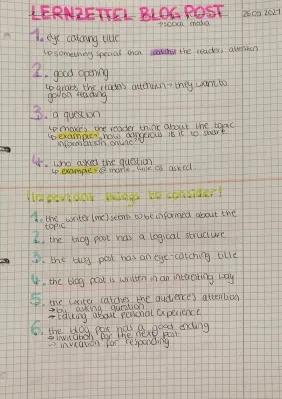 LERNZETTEL BLOG POST
↳ social media
1. eye catching title
↳ something special that catches the readers attention
2. good opening
↳ grabs the readers attention → they want to
go on reading
3. a question
↳ makes the reader think about the topic
↳ example: how dangerous is it to share
information online?
4. who asked the question
↳ example: asked
Important things to consider!
1. the writer (me) seems to be informed about the
topic
2. the blog post has a logical structure
3. the blog post has an eye-catching title
4. the blog post is written in an interesting way
5. the writer catches the audience's attention
→ by asking question
→ talking about personal experience
6. the blog post has a good ending
→ invitation for the next post
→ invitation for responding